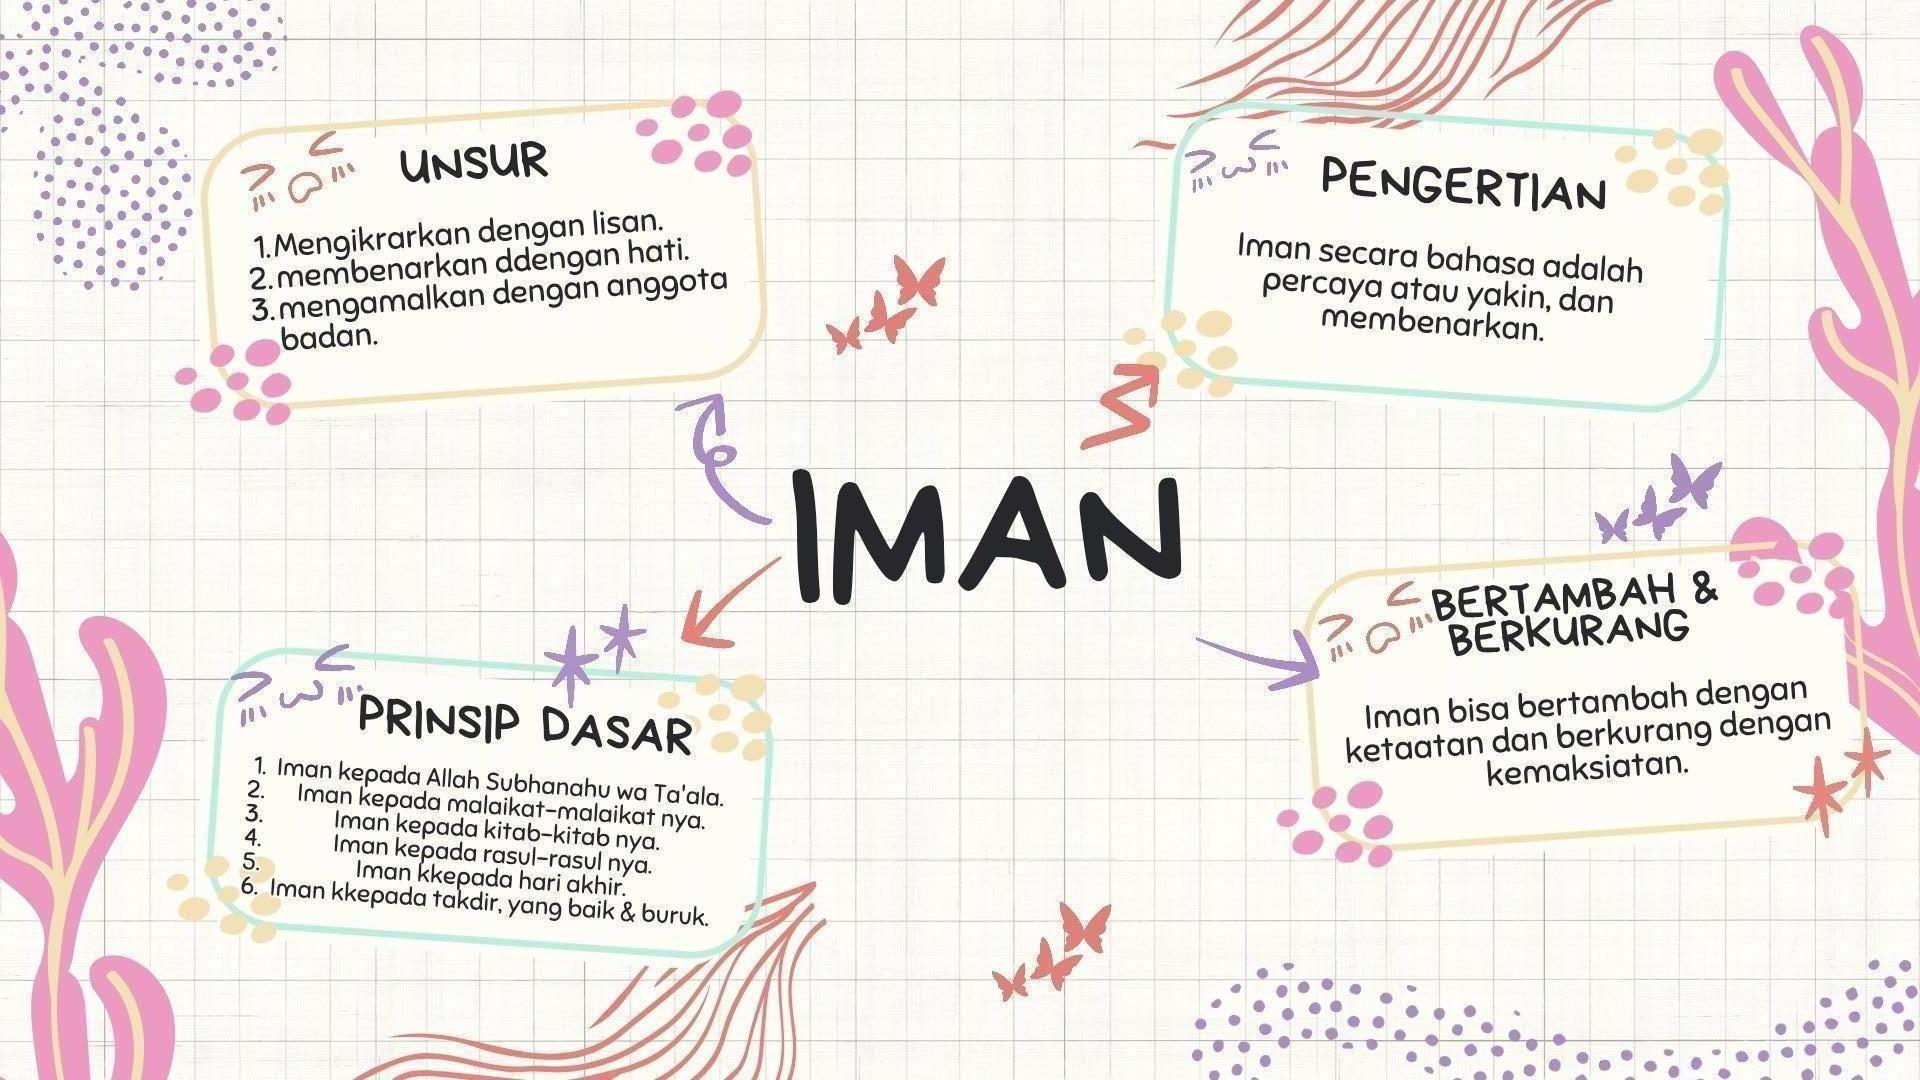 UNSUR
1. Mengikrarkan dengan lisan.
2. membenarkan ddengan hati.
3. mengamalkan dengan anggota
badan.
PENGERTIAN
Iman secara bahasa adalah
percaya atau yakin, dan
membenarkan.
IMAN
PRINSIP DASAR
1. Iman kepada Allah Subhanahu wa Ta'ala.
2. Iman kepada malaikat-malaikat nya.
3. Iman kepada kitab-kitab nya.
4. Iman kepada rasul-rasul nya.
5. Iman kkepada hari akhir.
6. Iman kkepada takdir, yang baik & buruk.
BERTAMBAH &
BERKURANG
Iman bisa bertambah dengan
ketaatan dan berkurang dengan
kemaksiatan.